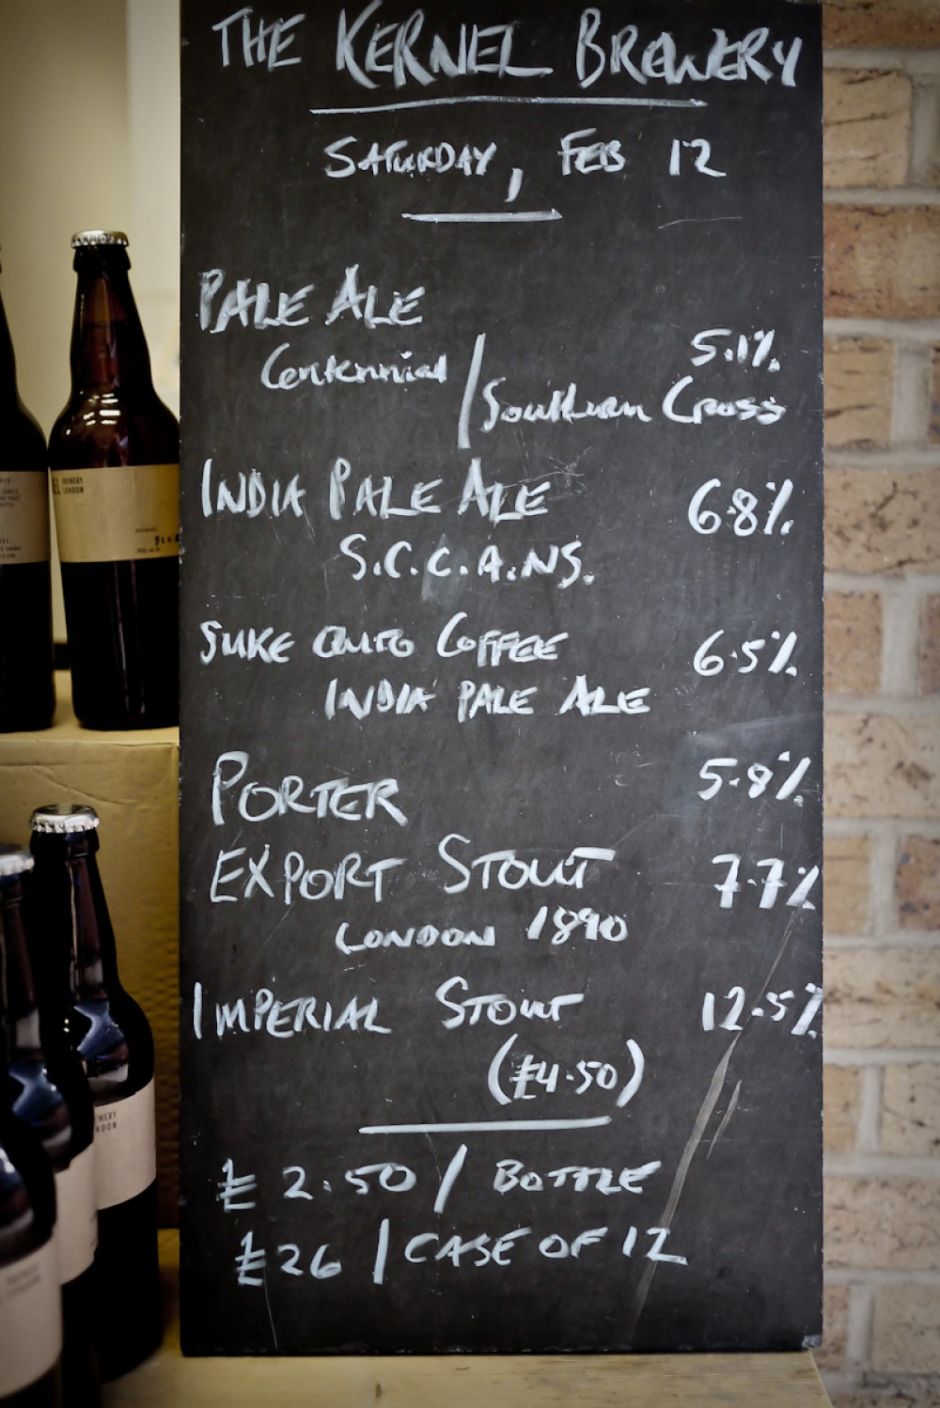 THE KERNEL BREWERY
SATURDAY, FEB 12
PALE ALE
Centennial / Southern Cross 5.1%
INDIA PALE ALE 6.8%
S.C.C.A.NS.
SUKE QUTO COFFEE 6.5%
INDIA PALE ALE
PORTER 5.8%
EXPORT STOUT 7.7%
LONDON 1890
IMPERIAL STOUT 12.5%
(£4.50)
£ 2.50 / BOTTLE
£26 / CASE OF 12
BREWERY
LONDON